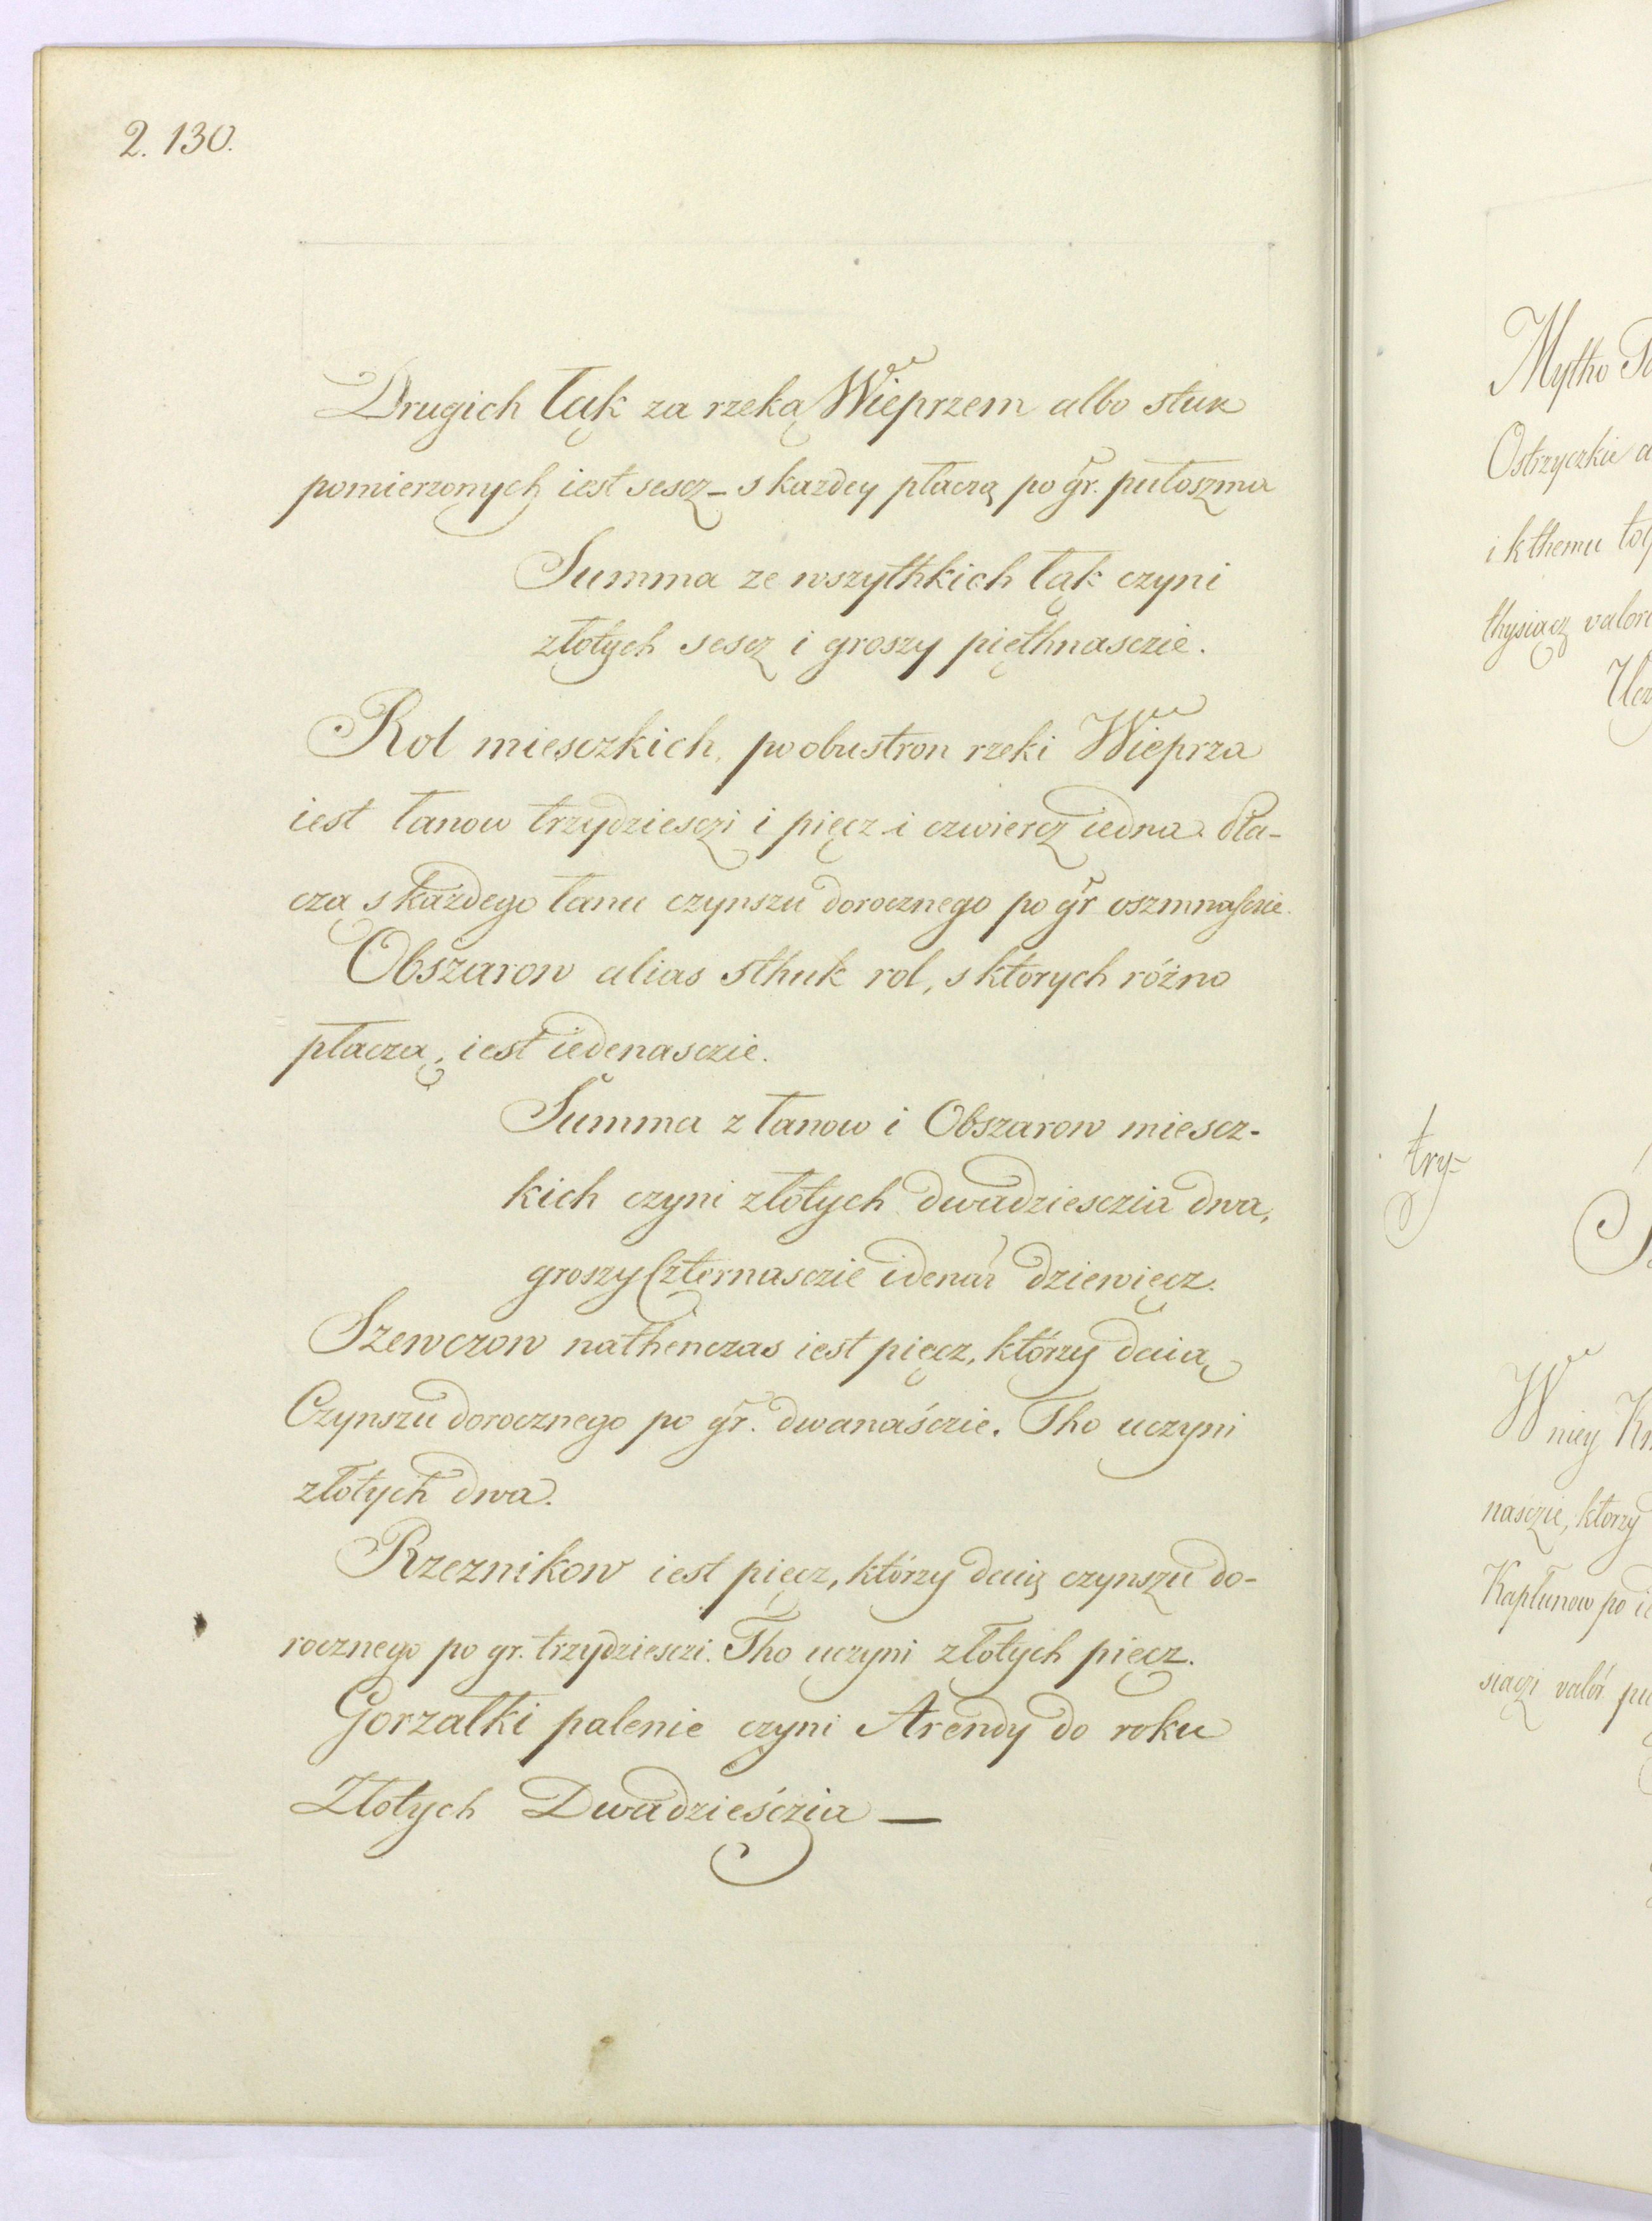 2. 130.
Drugich łąk za rzeką Wieprzem albo stuk
pomierzonych iest sescz – s kazdey płaczą po gr. pułoszma
Summa ze wszythkich łąk czyni
złotych sescz i groszy pięthnasczie.
Rol miesczkich, po obustron rzeki Wieprza
iest łanow trzydziesczi i pięcz i czwiercz iedna. Pła-
czą s każdego łanu czynszu dorocznego po gr oszmnasczie.
Obszarow alias sthuk rol, s ktorych różno
płaczą, iest iedenasczie.
Summa z łanow i Obszarow miescz-
kich czyni złotych dwadziesczia dwa,
groszy Czternasczie i denar dziewięcz.
Szewczow nathenczas iest pięcz, którzy daią
Czynszu dorocznego po gr. dwanaśczie. Tho uczyni
złotych dwa.
Rzeznikow iest pięcz, którzy daią czynszu do-
rocznego po gr. trzydziesczi. Tho uczyni złotych pięcz.
Gorzałki palenie czyni Arendy do roku
Złotych Dwadzieśczia —
Mytho
Ostrzyczkie
i kthemu
thysiącz valor
try-
W niey
nasczie, ktorzy
Kapłunow po
siaczi valor